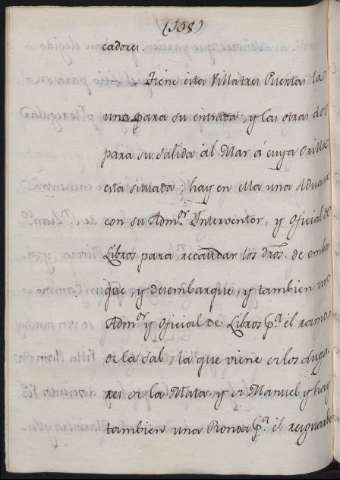 (138)
cadores.
Tiene esta Villa tres Puertas las
una para su entrada, y las otras dos
para su salida al Mar á cuya orilla
está situada; hay en ella una Aduana
con su Adm.or Interventor, y Oficial de
Libros para recaudar los dros. de embar
que, y desembarque, y tambien un
Adm.or y Oficial de Libros p.a el ramo
de la Sal, la que viene de los Luga
res de la Mata y de Manuel y hay
tambien una Ronda p.a el resguardo